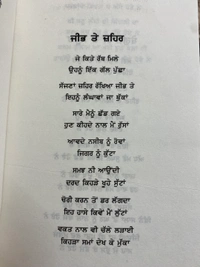 ਜੀਭ ਤੇ ਜ਼ਹਿਰ
ਜੇ ਕਿਤੇ ਰੱਬ ਮਿਲੇ
ਉਹਨੂੰ ਇੱਕ ਗੱਲ ਪੁੱਛਾ
ਸੱਜਣਾਂ ਜ਼ਹਿਰ ਰੱਖਿਆ ਜੀਭ ਤੇ
ਇਹਨੂੰ ਲੰਘਾਵਾਂ ਜਾ ਥੁੱਕਾਂ
ਸਾਰੇ ਮੈਨੂੰ ਛੱਡ ਗਏ
ਹੁਣ ਕੀਹਦੇ ਨਾਲ ਮੈਂ ਰੁੱਸਾਂ
ਆਵਦੇ ਨਸੀਬ ਨੂੰ ਰੋਵਾਂ
ਜਿਗਰ ਨੂੰ ਕੁੱਟਾਂ
ਸਮਝ ਨੀ ਆਉਂਦੀ
ਦਰਦ ਕਿਹੜੇ ਖੂਹੇ ਸੁੱਟਾਂ
ਚੋਰੀ ਕਰਨ ਤੋਂ ਡਰ ਲੱਗਦਾ
ਫਿਰ ਹਾਸੇ ਕਿਵੇਂ ਮੈਂ ਲੁੱਟਾਂ
ਵਕਤ ਨਾਲ ਵੀ ਚੱਲੇ ਲੜਾਈ
ਕਿਹੜਾ ਸਮਾਂ ਦੇਖ ਕੇ ਮੁੱਕਾਂ